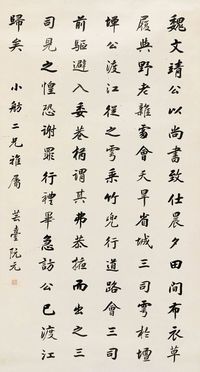 魏文靖公以尚書致仕晨夕田間布衣草
履與野老雜處會天旱省城三司雩於壇
墠公渡江從之雩乘竹兜行道路會三司
前驅避入委巷猶謂其弗恭擁而出之三
司見之惶恐謝罪行禮畢急訪公已渡江
歸矣 小舫二兄雅屬 芸臺阮元